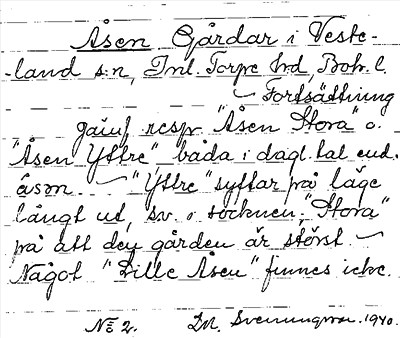 Åsen Gårdar i Veste-
-land s:n, Inl. Torpe hrd, Boh. l.
Fortsättning
jämf resp "Åsen Stora" o.
"Åsen Yttre" båda i dagl. tal end.
åsen. — "Yttre" syftar på läge
långt ut, sv. i socknen, "Stora"
på att den gården är störst. —
Något "Lille Åsen" finnes icke.
No 2. D.A. Svenungsson. 1940.